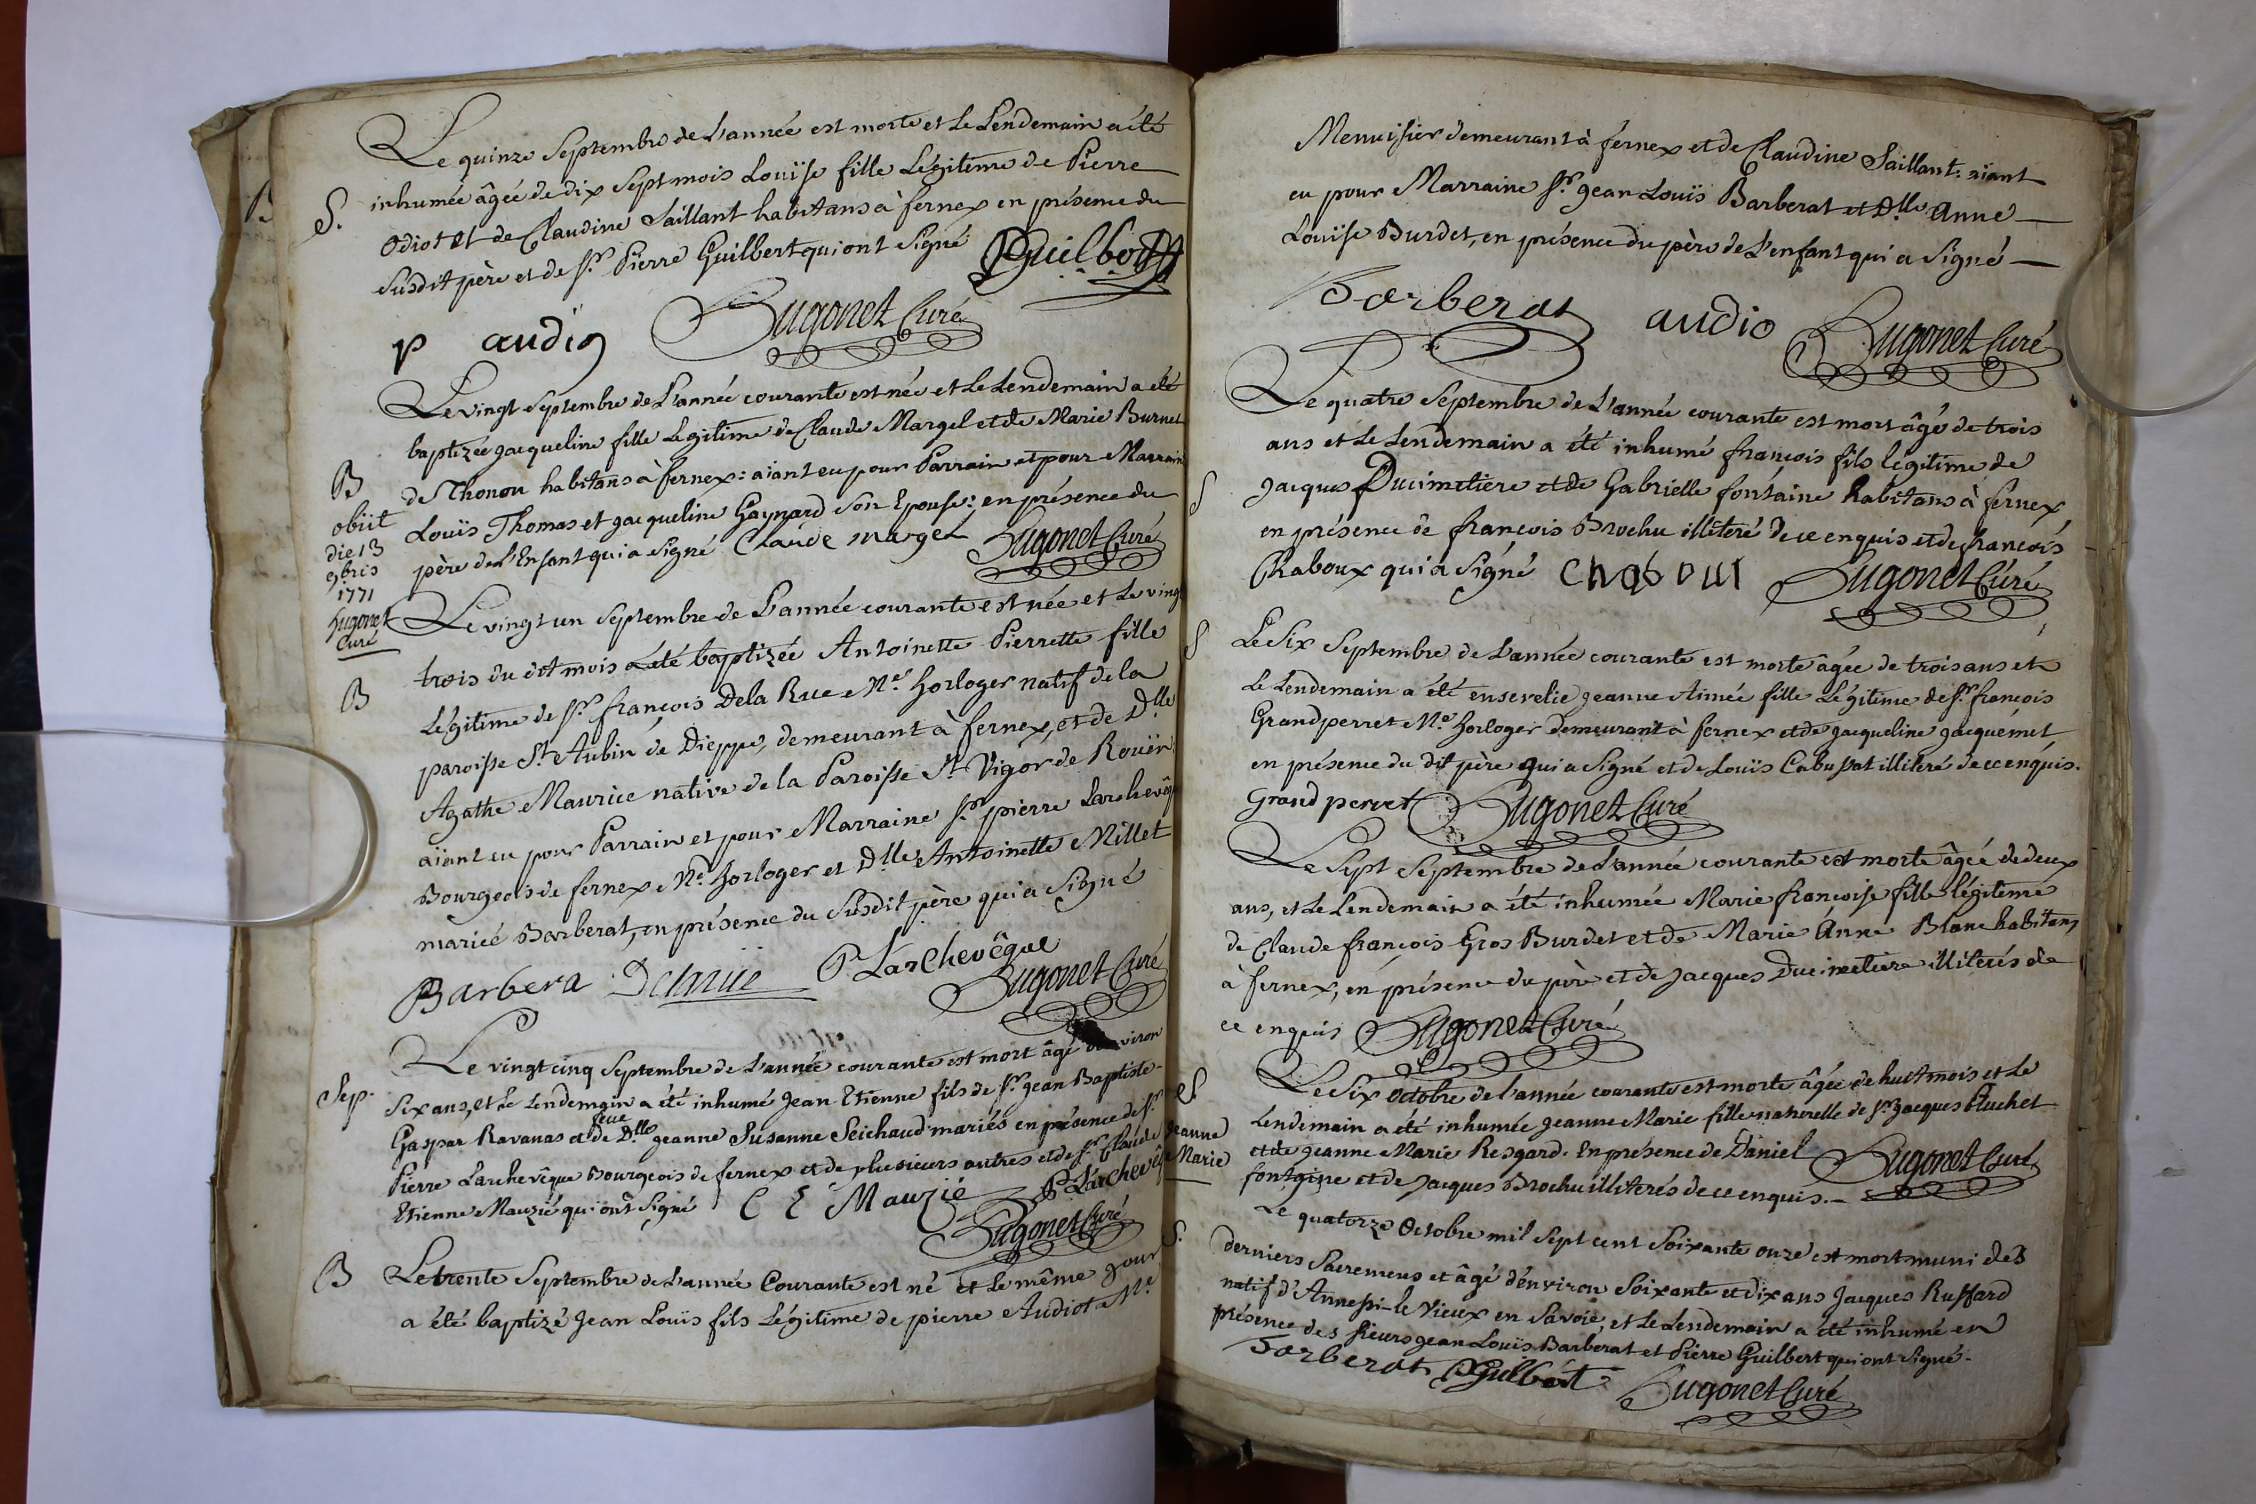 Le quinze Septembre de L'année est morte et Le Lendemain a été
S. inhumée âgée de dix sept mois Louïse fille Légitime de Pierre
Odiot et de Claudine Saillant habitans à fernex en présence du
susdit père et de Sr. Pierre Guilbert qui ont Signé PGuilbert
p audio Hugonet Curé
Le vingt Septembre de L'année courante est née et Le Lendemain a été
baptizée jacqueline fille Légitime de Claude Margel et de Marie Burnet
B de Thonon habitans à fernex: aiant eu pour Parrain et pour Marraine
obiit
die 13
9bris
1771
Hugonet
Curé
Louïs Thomas et jacqueline Gaynard son Epouse: en présence du
père de L'Enfant qui a signé Claude margel Hugonet Curé
Le vingt un Septembre de L'année courante est née et Le vingt
trois du dit mois a été baptizée Antoinette Pierrette fille
B Légitime de Sr. françois Dela Rue Me. horloger natif de la
paroisse St. Aubin de Dieppe, demeurant à fernex, et de Dlle
Agathe Maurice native de la Paroisse St. Vigor de Roüen
aïant eu pour Parrain et pour Marraine Sr. pierre Larchevêque
Bourgeois de fernex Me. horloger et Dlle. Antoinette Millet
mariée Barberat, en présence du Susdit père qui a Signé
Barbera Delarüe P Larchevêque
Hugonet Curé
Le vingt cinq Septembre de L'année courante est mort âgé d'environ
Sep. Six ans, et Le Lendemain a été inhumé Jean Etienne fils de Sr. jean Baptiste
Gaspar Ravanas et de feüe Dlle. jeanne Susanne Seichaud mariés en présence de Sr.
Pierre Larchevêque Bourgeois de fernex et de plusieurs autres et de Sr. Claude
Etienne Mauzié qui ont Signé C E Mauzié P Larchevêque
Hugonet Curé
B Le trente Septembre de L'année Courante est né et Le même jour
a été baptizé Jean Louïs fils Légitime de pierre Audiot Me.
Menuisier demeurant à fernex et de Claudine Saillant: aïant
eu pour Marraine Sr. jean Louïs Barberat et Dlle. Anne
Louïse Burdet, en présence du père de L'enfant qui a Signé
Barberat audio Hugonet Curé
Le quatre Septembre de L'année courante est mort âgé de trois
ans et Le Lendemain a été inhumé françois fils légitime de
S Jacques Ducimetiere et de Gabrielle fontaine habitans à fernex
en présence de françois Brochu illiteré de ce enquis et de françois
Chaboux qui a Signé Chaboux Hugonet Curé
S Le Six Septembre de L'année courante est morte âgée de trois ans et
Le Lendemain a été ensevelie jeanne Aimée fille Légitime de Sr. françois
Grandperret Me. horloger demeurant à fernex et de jacqueline jacquemet
en présence du dit père qui a Signé et de Louïs Cabussat illiteré de ce enquis.
Grand perret Hugonet Curé
Le Sept Septembre de L'année courante est morte âgée de deux
ans, et Le Lendemain a été inhumée Marie françoise fille légitime
de Claude françois Gros Burdet et de Marie Anne Blanc habitans
à fernex, en présence du père et de Jacques Ducimetiere illiterés de
ce enquis Hugonet Curé
Le Six Octobre de L'année courante est morte âgée de huit mois et Le
S Lendemain a été inhumée jeanne Marie fille naturelle de Sr. Jacques Pluchet
Jeanne
Marie
et de jeanne Marie Resgard. En présence de Daniel Hugonet Curé
fontaine et de Jacques Brochu illiterés de ce enquis.
Le quatorze Octobre mil Sept cent Soixante onze est mort muni des
S. derniers Sacremens et âgé d'environ Soixante et dix ans Jacques Ruffard
natif d'Annessi-le Vieux en Savoie, et Le Lendemain a été inhumé en
présence des Sieurs jean Louïs Barberat et Pierre Guilbert qui ont Signé.
Barberat PGuilbert Hugonet Curé